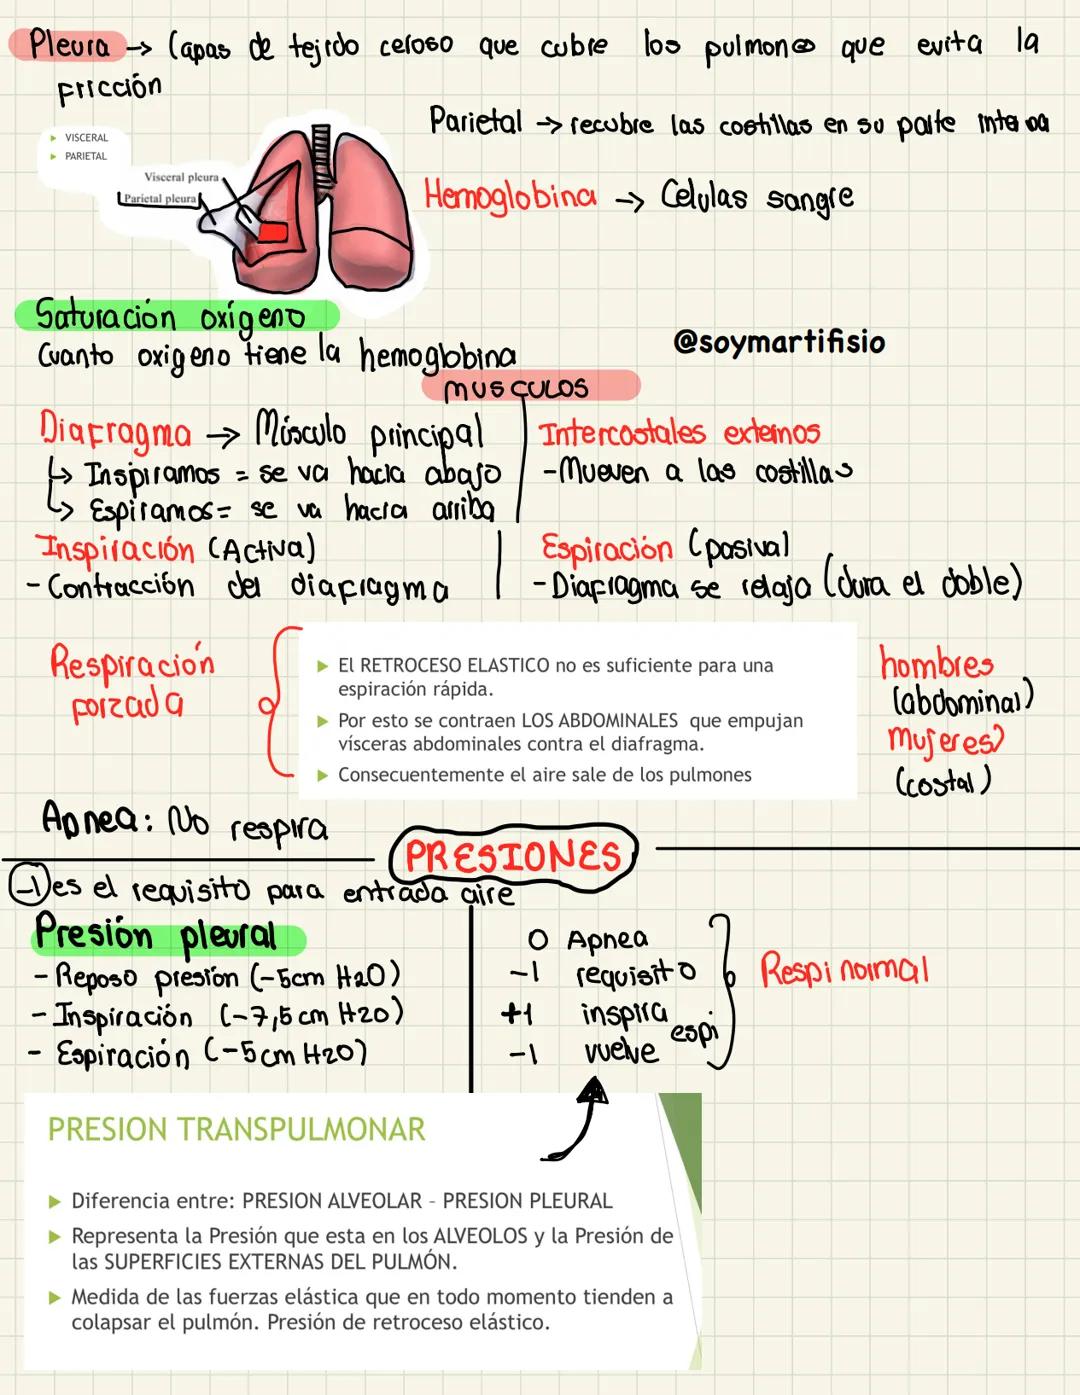 Pleura → Capas de tejido ceroso que cubre los pulmones que evita la
fricción
▶ VISCERAL
▶ PARIETAL
Visceral pleura
Parietal pleura
Parietal → recubre las costillas en su parte interna
Hemoglobina → Celulas sangre
Saturación oxígeno
Cuanto oxigeno tiene la hemoglobina
@soymartifisio
MUSCULOS
Diafragma → Músculo principal
↳ Inspiramos = se va hacia abajo
↳ Espiramos = se va hacia arriba
Intercostales externos
-Mueven a las costillas
Inspiración (Activa)
- Contracción del diafragma
Espiración (pasiva)
- Diafragma se relaja (dura el doble)
Respiración
forzada
▶ El RETROCESO ELASTICO no es suficiente para una
espiración rápida.
▶ Por esto se contraen LOS ABDOMINALES que empujan
vísceras abdominales contra el diafragma.
▶ Consecuentemente el aire sale de los pulmones
hombres
(abdominal)
Mujeres
(costal)
Apnea: No respira
PRESIONES
-1 es el requisito para entrada aire
Presión pleural
- Reposo presión (-5cm H2O)
- Inspiración (-7,5 cm H2O)
- Espiración (-5cm H2O)
0 Apnea
-1 requisito
+1 inspira
espi
-1 vuelve
Respi normal
PRESION TRANSPULMONAR
▶ Diferencia entre: PRESION ALVEOLAR – PRESION PLEURAL
▶ Representa la Presión que esta en los ALVEOLOS y la Presión de
las SUPERFICIES EXTERNAS DEL PULMÓN.
▶ Medida de las fuerzas elástica que en todo momento tienden a
colapsar el pulmón. Presión de retroceso elástico.